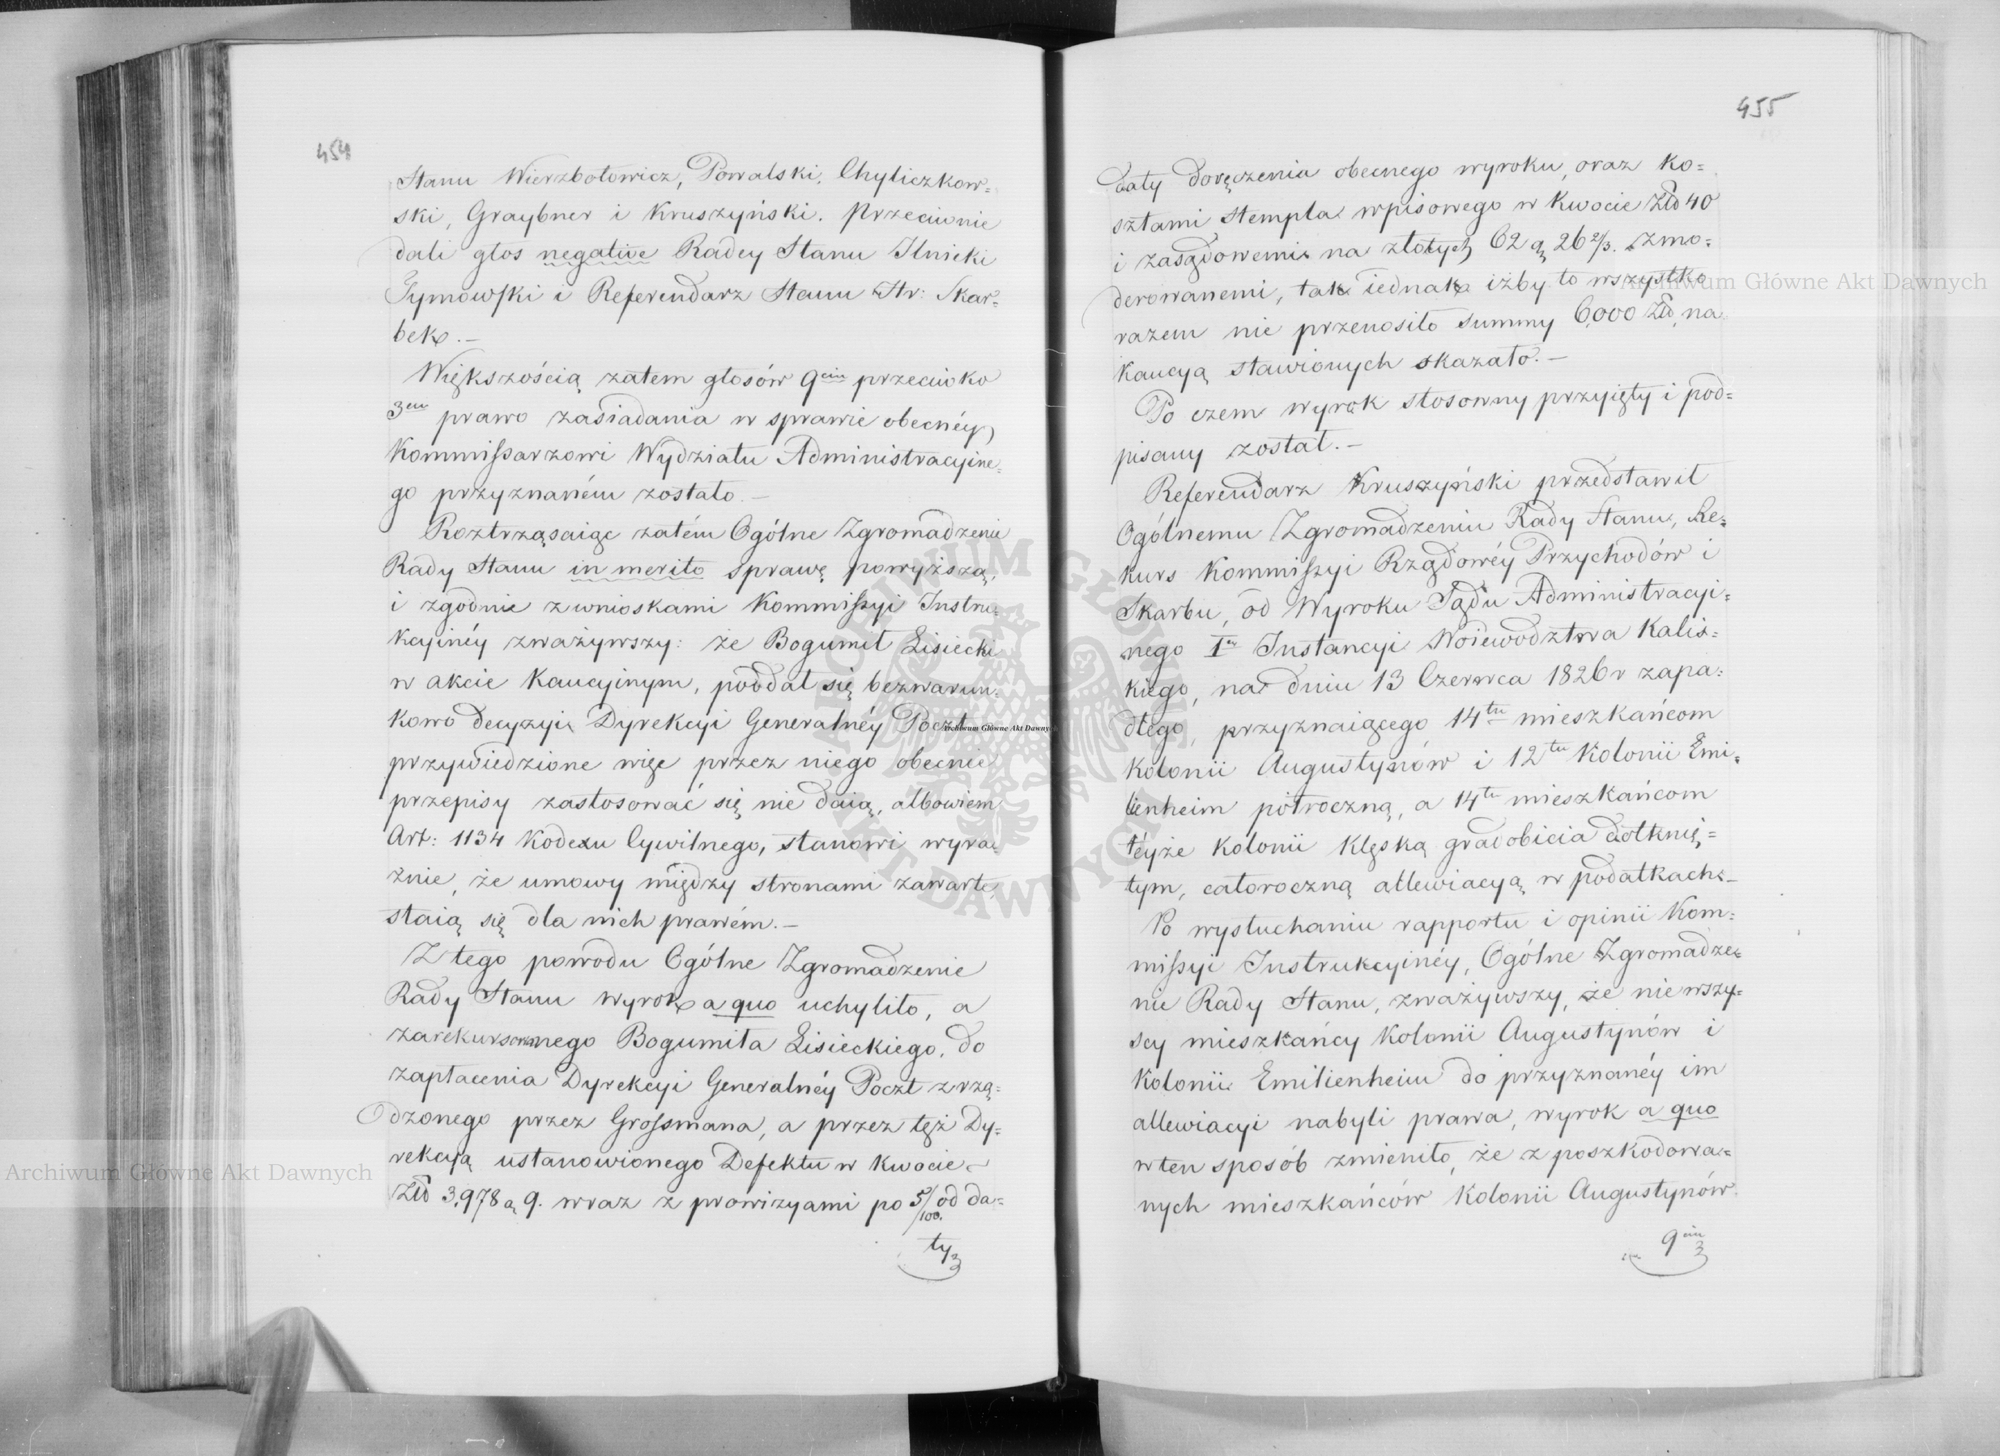 454
Stanu Wierzbołowicz, Powalski, Chyliczkow-
ski, Graybner i Kruszyński. Przeciwnie
dali głos negative Radcy Stanu Ilnicki
Tymowski i Referendarz Stanu Hr: Skar-
bek.—
Większością zatem głosów 9ciu przeciwko
3em prawo zasiadania w sprawie obecnéy,
Kommissarzowi Wydziału Administracyine-
go przyznaném zostało.—
Roztrząsaiąc zatém Ogólne Zgromadzenie
Rady Stanu in merito sprawę powyższą,
i zgodnie z wnioskami Kommissyi Instru-
kcyinéy zważywszy: że Bogumił Lisiecki
w akcie Kaucyinym, poddał się bezwarun-
kowo decyzyi Dyrekcyi Generalnéy Poczt
przywiedzione więc przez niego obecnie
przepisy zastosować się nie daią, albowiem
Art: 1134 Kodexu Cywilnego, stanowi wyra-
źnie, że umowy między stronami zawarte,
staią się dla nich prawém.—
Z tego powodu Ogólne Zgromadzenie
Rady Stanu wyrok a quo uchyliło, a
zarekursowanego Bogumiła Lisieckiego, do
zapłacenia Dyrekcyi Generalnéy Poczt zrzą-
dzonego przez Grossmana, a przez tęż Dy-
rekcyą ustanowionego Defektu w kwocie
Złp 3,978 g 9. wraz z prowizyami po 5/100 od da-
ty
455
daty doręczenia obecnego wyroku, oraz ko-
sztami stempla wpisowego w kwocie Złp 40
i zasądowemi na złotych 62 g 26 2/3. zmo-
derowanemi, tak iednak iżby to wszystko
razem nie przenosiło summy 6,000 Złp, na
kaucyą stawionych skazało.—
Po czem wyrok stosowny przyięty i pod-
pisany został.—
Referendarz Kruszyński przedstawił
Ogólnemu Zgromadzeniu Rady Stanu, Re-
kurs Kommissyi Rządowéy Przychodów i
Skarbu, od Wyroku Sądu Administracyi-
nego 1ey Instancyi Woiewództwa Kalis-
kiego, na dniu 13 Czerwca 1826 r zapa-
dłego, przyznaiącego 14tu mieszkańcom
kolonii Augustynów i 12tu Kolonii Emi-
lienheim półroczną, a 14tu mieszkańcom
téyże kolonii klęską gradobicia dotknię-
tym, całoroczną allewiacyą w podatkach.—
Po wysłuchaniu rapportu i opinii Kom-
missyi Instrukcyinéy, Ogólne Zgromadze-
nie Rady Stanu, zważywszy, że nie wszy-
scy mieszkańcy Kolonii Augustynów i
Kolonii Emilienheim do przyznanéy im
allewiacyi nabyli prawa, wyrok a quo
w ten sposób zmieniło, że z poszkodowa-
nych mieszkańców Kolonii Augustynów
9ciu
Archiwum Główne Akt Dawnych
Archiwum Główne Akt Dawnych
Archiwum Główne Akt Dawnych
ARCHIWUM GŁÓWNE AKT DAWNYCH